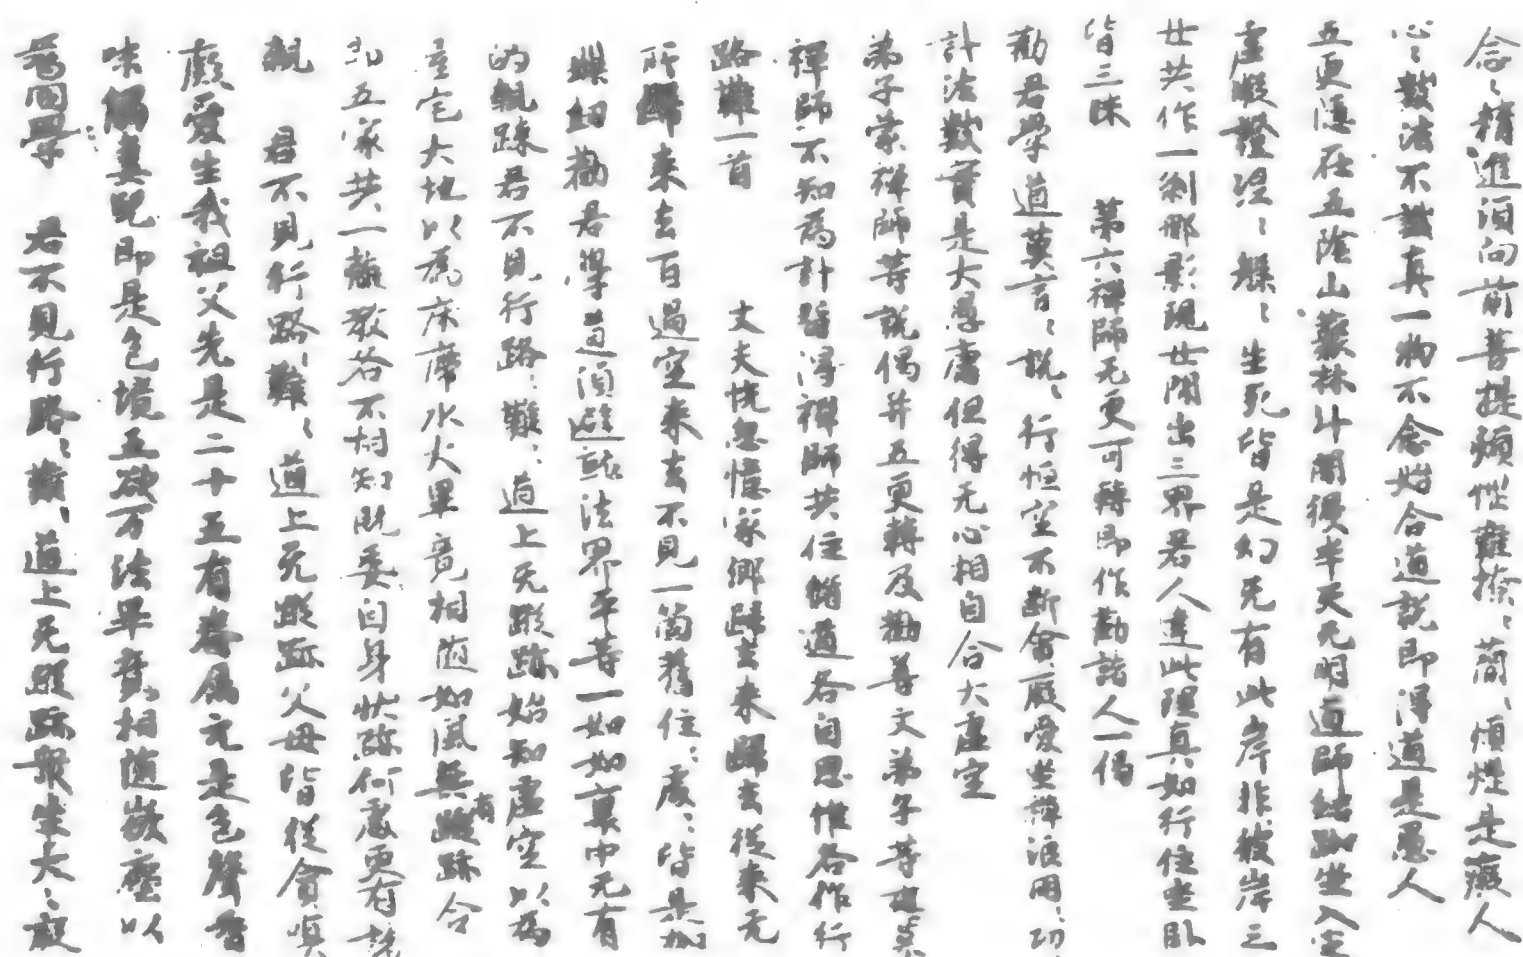 念〻精進須向前菩提煩惱難撩〻簡〻煩惱是癡人
心〻數法不識真一物不念始合道説即得道是愚人
五更隱在五陰山藂林斗闇侵半天无明道師結跏坐入定
虛凝證涅〻槃〻生死皆是幻无有此岸非彼岸三
世共作一刹那影現世間出三界若人達此理真知行住坐臥
皆三昧　第六禪師无更可轉即作勸諸人一偈
勸君學道莫言〻説〻行恒空不斷貪癡愛坐禪浪用〻功
計法數實是大愚庸但得无心相自合大虛空
弟子蒙禪師等説偈并五更轉及勸善文弟子等
禪師不知為計留得禪師共住脩道各自思惟各作行
路難一首　丈夫恍忽憶家鄉歸去來歸去從來无
所歸來去百過空來去不見一箇舊住〻處〻皆是
勸君學道須避就法界平等一如如裏中无有
的親踈君不見行路〻難〻道上无蹤跡始知虛空以為
室宅大地以為床席水火畢竟相隨如風無蹤跡合
知五家共一 教君不 知既委自身狀跡何處更有
親　君不見行路〻難〻道上无蹤跡父母皆從貪嗔
癡愛生我祖父先是二十五有眷属元是色聲香
味觸真既即是色境五欲万法畢竟相隨 以
為同學　君不見行路〻難〻道上无蹤跡眾生大〻癡